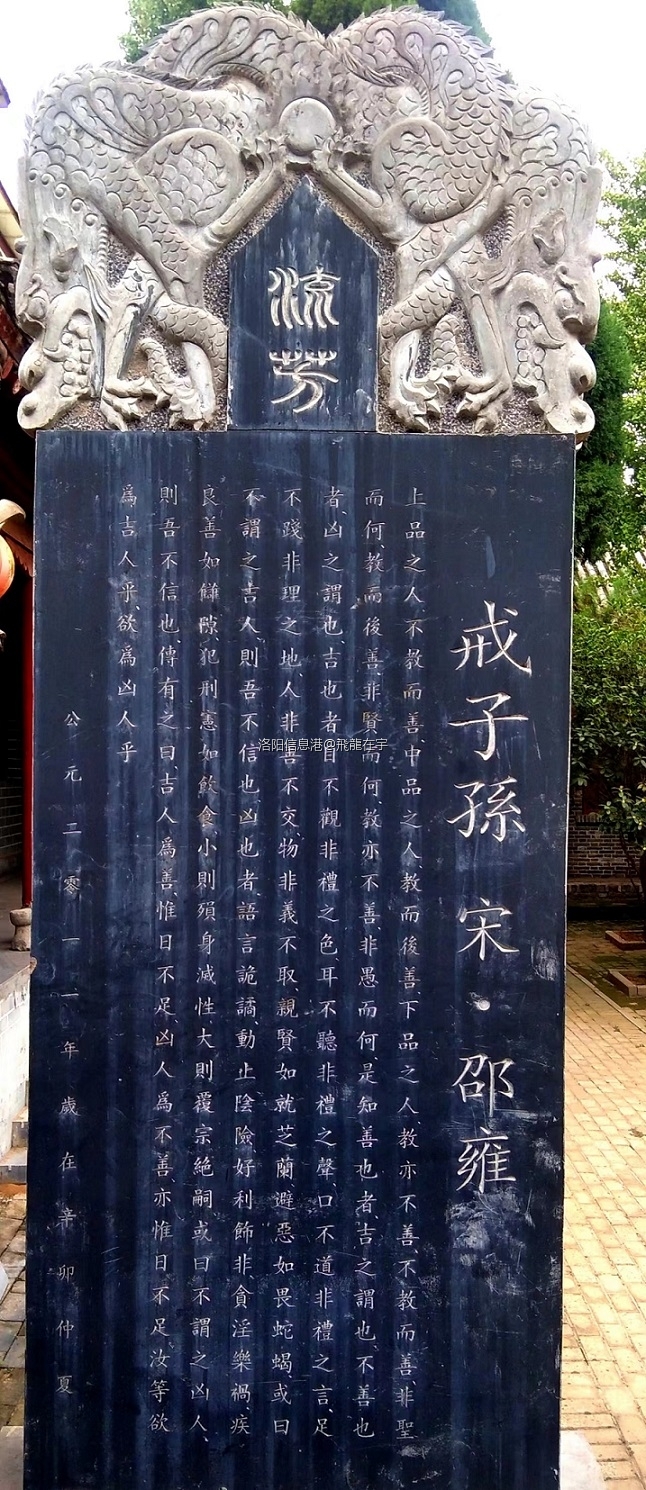 流芳
戒子孫 宋·邵雍
上品之人、不教而善、中品之人、教而後善、下品之人、教亦不善、不教而善、非聖
而何、教而後善、非賢而何、教亦不善、非愚而何、是知善也者、吉之謂也、不善也
者、凶之謂也、吉也者、目不觀非禮之色、耳不聽非禮之聲、口不道非禮之言、足
不踐非理之地、人非善不交、物非義不取、親賢如就芝蘭、避惡如畏蛇蝎、或曰
不謂之吉人、則吾不信也、凶也者、語言詭譎、動止陰險、好利飾非、貪淫樂禍、疾
良善如讎隙、犯刑憲如飲食、小則殞身滅性、大則覆宗絕嗣、或曰不謂之凶人、
則吾不信也、傳有之曰、吉人為善、惟日不足、凶人為不善、亦惟日不足、汝等欲
為吉人乎、欲為凶人乎
公元二零一一年歲在辛卯仲夏
洛阳信息港@飛龍在宇